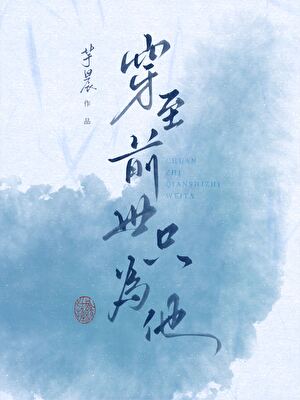 芋晨
作品
穿至
前世只
為他
CHUAN
ZHI
QIANSHIZHI
WEITA